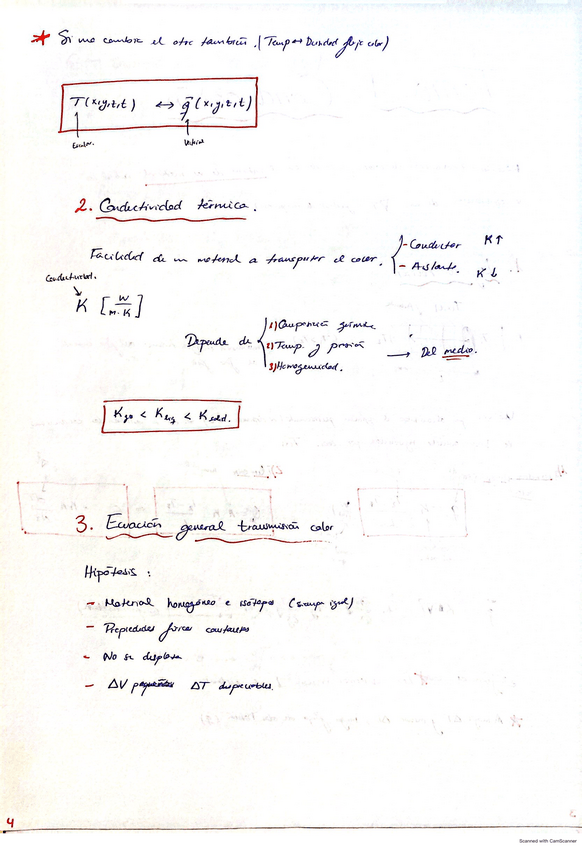 * Si uno cambia el otro también. (Temp ↔ Densidad flujo calor)
T(x,y,z,t) ↔ q̄(x,y,z,t)
Escalar. Vector
2. Conductividad térmica.
Facilidad de un material a transportar el calor. { - Conductor K↑
- Aislante. K↓
Conductividad.
K [W/m·K]
Depende de { 1) Composición química
2) Temp. y presión → Del medio.
3) Homogeneidad.
Kgas < Kliq < Ksolid.
3. Ecuación general transmisión calor
Hipótesis :
- Material homogéneo e isótropo (siempre igual)
- Propiedades físicas constantes
- No se desplaza
- ΔV pequeñas ΔT despreciables.
4
Scanned with CamScanner